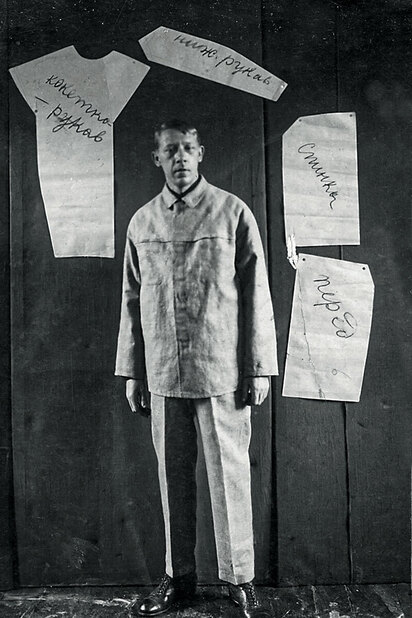 кокетка
рукав
ниж. рукав
спинка
перед